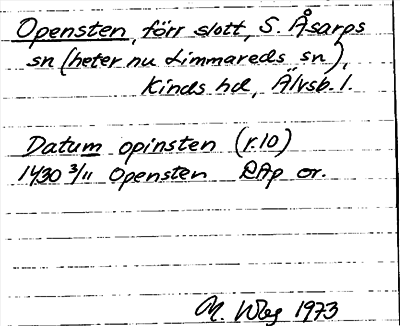 Opensten, förr slott, S. Åsarps
sn (heter nu Limmareds sn),
Kinds hd, Älvsb. l.
Datum opinsten (r.10)
1430 3/11 Opensten RAp or.
M. Wbg 1973